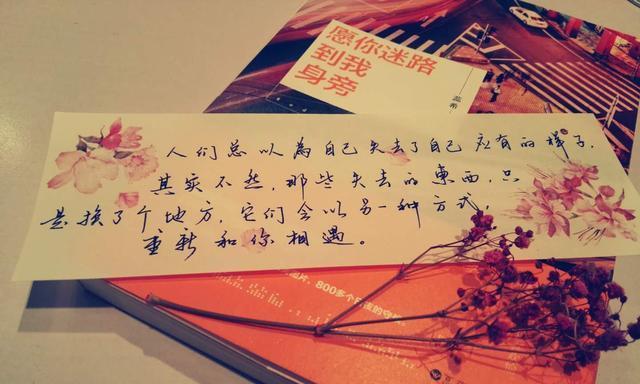 愿你迷路
到我
身旁
蕊希
人们总以為自己失去了自己应有的样子，
其实不然，那些失去的東西，只
是换了个地方，它们会以另一种方式，
重新和你相遇。
800多个日夜的守候